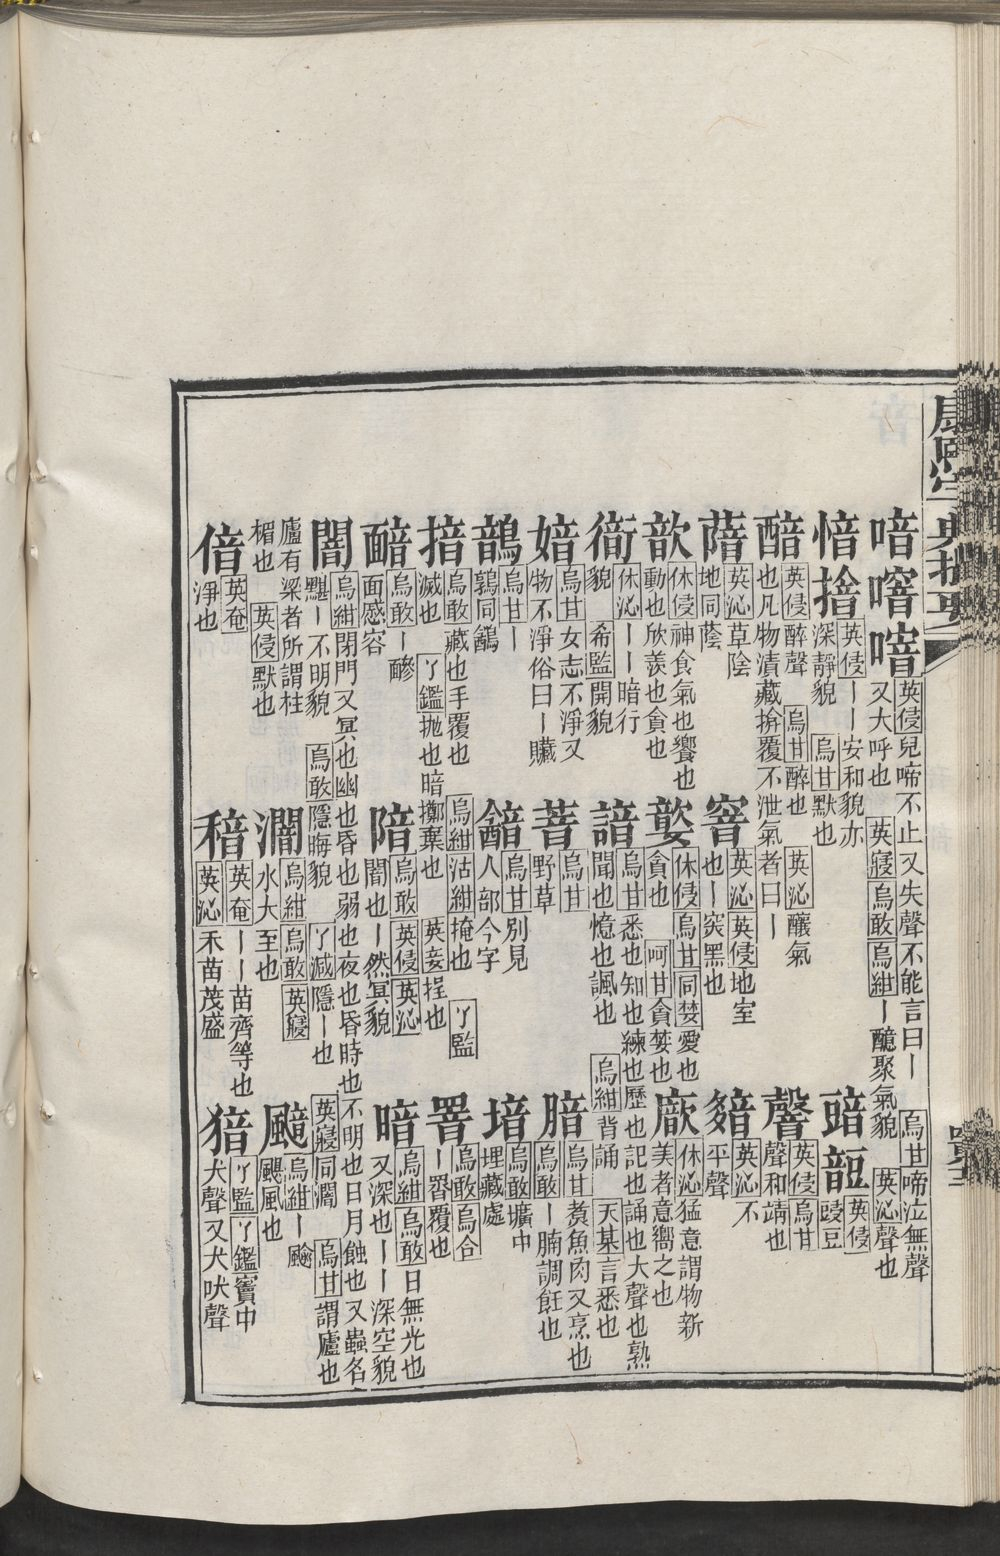 康熙字典撮要
喑
英侵兒啼不止又失聲不能言曰丨 烏甘啼泣無聲
又大呼也 英寢烏敢烏紺丨醷聚氣貌 英沁聲也
愔
英侵丨丨安和貌亦
深靜貌 烏甘默也
英侵
豉豆
英侵醉聲 烏甘醉也 英沁釀氣
也凡物漬藏揜覆不泄氣者曰丨
韾
英侵烏甘
聲和靖也
英沁草陰
地同蔭
窨
英沁英侵地室
也丨穾黑也
英沁不
平聲
歆
休侵神食氣也饗也
動也欣羨也貪也
休侵烏甘同婪愛也
貪也 呵甘貪婪也
廞
休沁猛意謂物新
美者意嚮之也
休沁丨丨暗行
貌 希監開貌
諳
烏甘悉也知也練也歷也記也誦也大聲也熟
聞也憶也諷也 烏紺背誦 天某言悉也
烏甘女志不淨又
物不淨俗曰丨贓
萻
烏甘
野草
腤
烏甘煑魚肉又烹也
烏敢丨腩調飪也
鶕
烏甘丨
鶉同鷂
烏甘別見
人部今字
堷
烏敢壙中
埋藏處
揞
烏敢藏也手覆也 烏紺沽紺掩也 丫監
滅也 丫鑑拋也暗擲棄也 英妾捏也
罯
烏敢烏合
丨罶覆也
烏敢丨醦
面感容
隌
烏敢英侵英沁
闇也丨然冥貌
暗
烏紺烏敢日無光也
又深也丨丨深空貌
闇
烏紺閉門又冥也幽也昏也弱也夜也昏時也不明也日月蝕也又蟲名
黮丨不明貌 烏敢隱晦貌 丫減隱丨也 英寢同濶 烏甘謂廬也
廬有梁者所謂柱
楣也 英侵默也
烏紺烏敢英寢
水大至也
烏紺丨颴
颶風也
偣
英奄
淨也
䅧
英奄丨丨苗齊等也
英沁禾苗茂盛
丫監丫鑑竇中
犬聲又犬吠聲